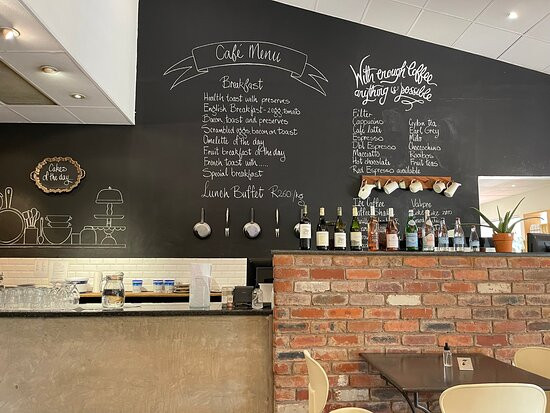 Café Menu
Breakfast
Health toast with preserves
English Breakfast - eggs, tomato
Bacon, toast and preserves
Scrambled eggs, bacon on toast
Omelette of the day
Fruit breakfast of the day
French toast with.....
Special breakfast
Lunch Buffet R260/kg
With enough Coffee
anything is possible
Filter
Cappucino
Café latte
Espresso
Dbl Espresso
Macciatto
Hot chocolate
Red Espresso available
Ceylon Tea
Earl Grey
Milo
Chococchino
Rooibos
Fruit teas
Ice Coffee
Valpre
Cakes
of the day